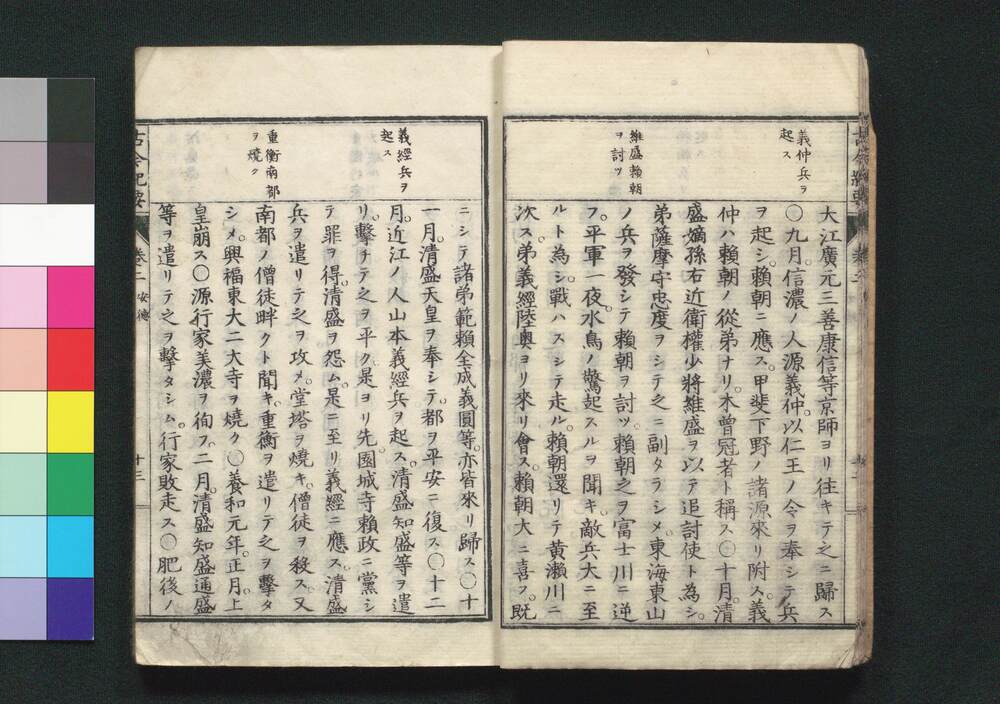 義仲兵ヲ
起ス
維盛賴朝
ヲ討ツ
大江廣元三善康信等京師ヨリ往キテ之ニ歸ス
〇九月。信濃ノ人源義仲。以仁王ノ令ヲ奉シテ兵
ヲ起シ。賴朝ニ應ス。甲斐下野ノ諸源來リ附ス。義
仲ハ賴朝ノ從弟ナリ。木曾冠者ト稱ス〇十月。清
盛嫡孫右近衛權少將維盛ヲ以テ追討使ト為シ。
弟薩摩守忠度ヲシテ之ニ副タラシメ。東海東山
ノ兵ヲ發シテ賴朝ヲ討ツ。賴朝之ヲ富士川ニ逆
フ。平軍一夜。水鳥ノ驚起スルヲ聞キ。敵兵大ニ至
ルト為シ。戰ハスシテ走ル。賴朝還リテ黄瀨川ニ
次ス。弟義經陸奥ヨリ來リ會ス。賴朝大ニ喜フ。既
義經兵ヲ
起ス
重衡南都
ヲ燒ク
ニシテ諸弟範賴全成義圓等。亦皆來リ歸ス〇十
一月。清盛天皇ヲ奉シテ。都ヲ平安ニ復ス〇十二
月。近江ノ人山本義經兵ヲ起ス。清盛知盛等ヲ遣
リ。擊チテ之ヲ平ク。是ヨリ先。園城寺賴政ニ黨シ
テ罪ヲ得。清盛ヲ怨ム。是ニ至リ義經ニ應ス。清盛
兵ヲ遣リテ之ヲ攻メ。堂塔ヲ燒キ。僧徒ヲ殺ス。又
南都ノ僧徒畔クト聞キ。重衡ヲ遣リテ之ヲ擊タ
シメ。興福東大二大寺ヲ燒ク〇養和元年。正月。上
皇崩ス〇源行家美濃ヲ徇フ。二月。清盛知盛通盛
等ヲ遣リテ之ヲ擊タシム。行家敗走ス〇肥後ノ
古今紀要
卷二
安德
十三